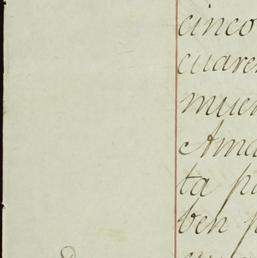 cinco
cuare
muer
Ama
ta p
ben p